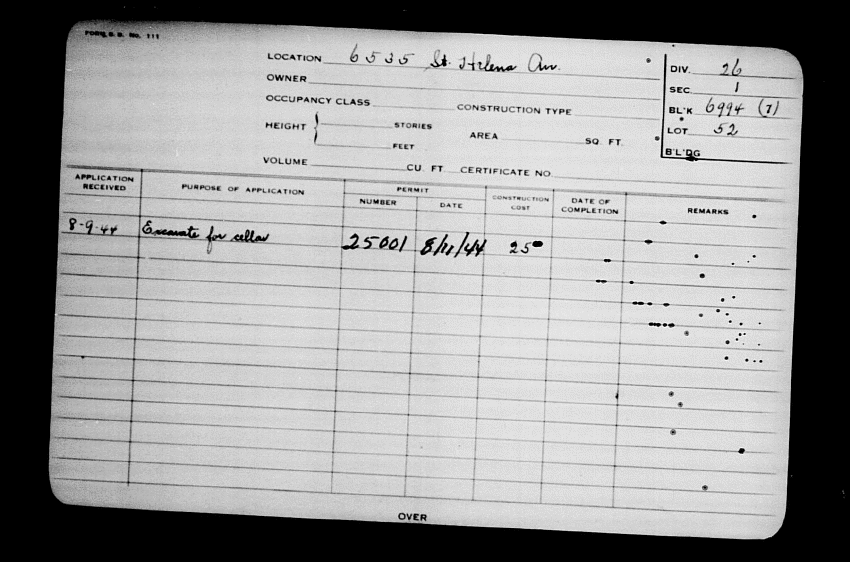 FORM B. D. No. 111
LOCATION 6535 St. Helena Av.
OWNER
OCCUPANCY CLASS CONSTRUCTION TYPE
HEIGHT { STORIES
FEET
AREA SQ. FT.
VOLUME CU. FT. CERTIFICATE NO.
DIV. 26
SEC. 1
BL'K 6994 (7)
LOT 52
B'L'DG
APPLICATION RECEIVED PURPOSE OF APPLICATION PERMIT NUMBER DATE CONSTRUCTION COST DATE OF COMPLETION REMARKS
8-9-44 Excavate for cellar 25001 8/11/44 25
OVER